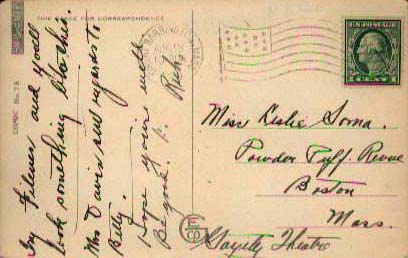 THE SPACE FOR CORRESPONDENCE
COMIC No. 78
Try Filenes and you'll
look something like this.
Miss Davis send regards to
Billy.
Hope you're with
K. Ruth
GREAT BARRINGTON, MASS.
U.S. POSTAGE
1 CENT 1
Miss Leslie Soma.
Powder Puff Revue
Boston
Mass.
Gayety Theatre
E C CO